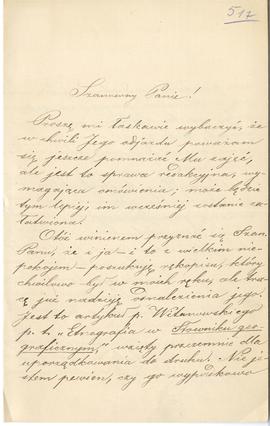 517
Szanowny Panie!
Proszę mi łaskawie wybaczyć, że
w chwili Jego odjazdu poważam
się jeszcze pomnażać Mu zajęć,
ale jest to sprawa redakcyjna, wy-
magająca omówienia; może będzie
tym lepiej, im wcześniej zostanie za-
łatwiona.
Otóż winienem przyznać się Szan.
Panu, że i ja – i to z wielkim nie-
pokojem – poszukuję rękopisu, który
chwilowo był w moich ręku, ale tracę
już nadzieję odnalezienia jego.
Jest to artykuł p. Witanowskiego
p. t. „Etnografia w Słowniku geo-
graficznym," wzięty przezemnie dla
uporządkowania do druku. Nie je-
stem pewien, czy go wypadkowo